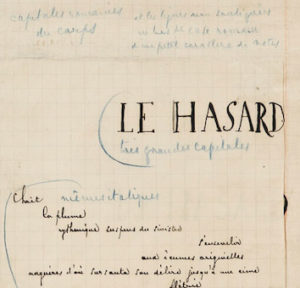 capitales romaines
du corps
et les lignes non soulignées
romain
d'un petit caractère de notes
LE HASARD
très grandes capitales
Choit
mêmes italiques
la plume
rythmique suspens du sinistre
s'ensevelir
aux écumes originelles
naguères d'où sursauta son délire jusqu'à une cime
flétrie